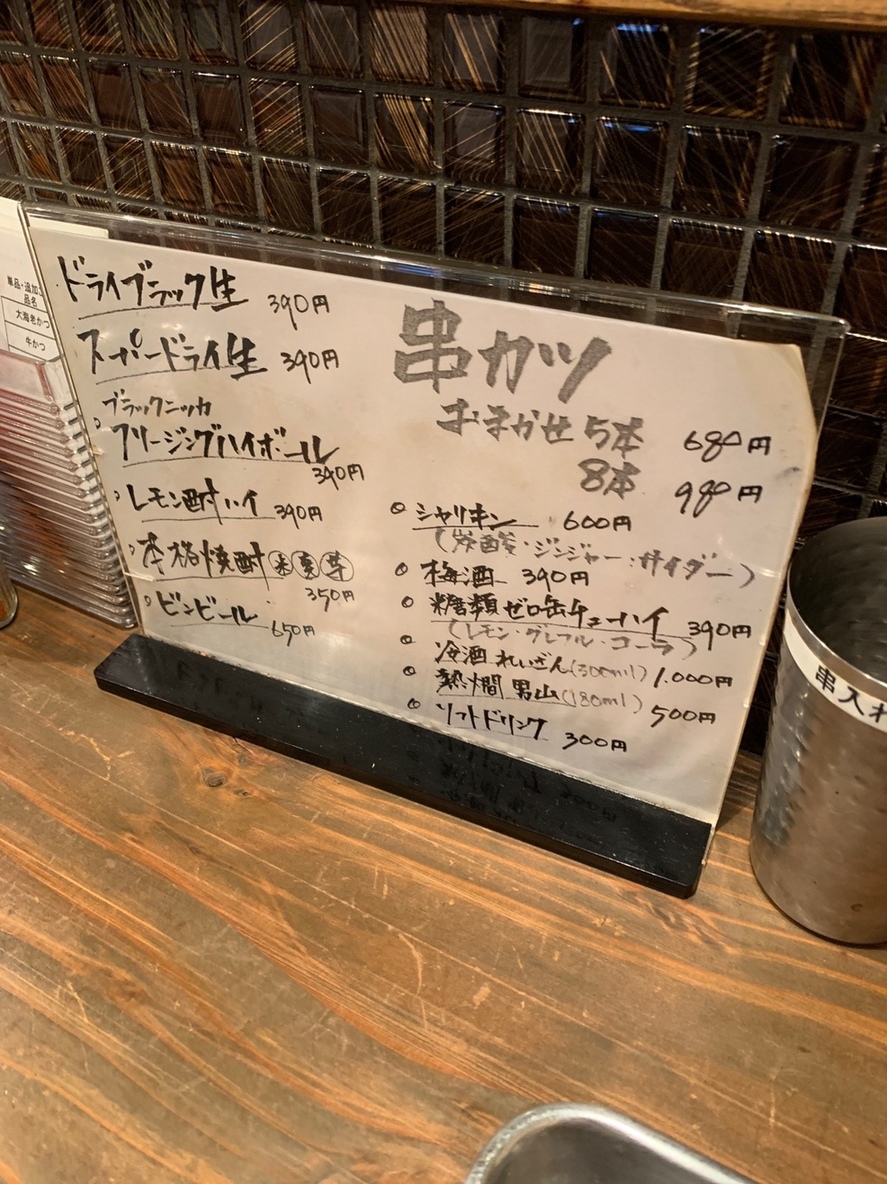 ドライブラック生 390円
スーパードライ生 390円
ブラックニッカ
フリージングハイボール
390円
レモン酎ハイ 390円
本格焼酎 米 麦 芋
350円
ビンビール
650円
串カツ
おまかせ 5本 680円
8本 980円
シャリキン 600円
(炭酸・ジンジャー・サイダー)
梅酒 390円
糖類ゼロ缶チューハイ 390円
(レモン・グレフル・コーラ)
冷酒 れいざん(300ml) 1.000円
熱燗 男山(180ml) 500円
ソフトドリンク 300円
単品・追加
品名
大海老かつ
牛かつ
串入れ